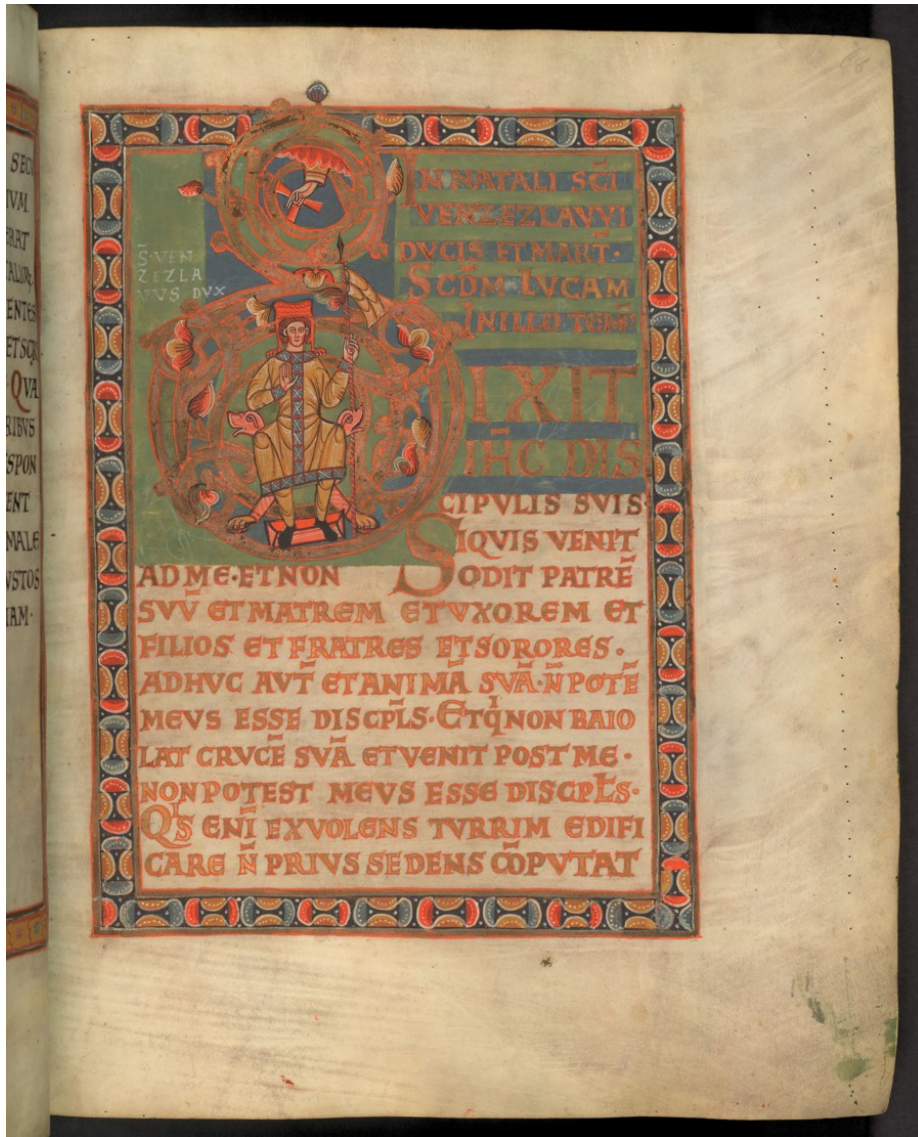 SECV
IVM
ERAT
TALIŪQ
ENTES
ET SCRI
QVA
RIBVS
ESPON
ENT
MALE
VSTOS
IAM·
68
S̄·VEN
ZEZLA
VVS DVX
IN NATALI SC̄I
VENZEZLAVVI
DVCIS ET MART̄·
SCD̄M LVCAM
IN ILLO TEM̄
DIXIT
IH̄C DIS
CIPVLIS SVIS·
SIQVIS VENIT
AD ME·ET NON ODIT PATRĒ
SVV̄ ET MATREM ET VXOREM ET
FILIOS ET FRATRES ET SORORES·
ADHVC AVT̄ ET ANIMĀ SVĀ·N̄ POTĒ
MEVS ESSE DISCPL̄S·ET Q̇ NON BAIO
LAT CRVCĒ SVĀ ET VENIT POST ME·
NON POTEST MEVS ESSE DISCPL̄S·
Q'S ENĪ EX VOLENS TVRRIM EDIFI
CARE N̄ PRIVS SEDENS CŌPVTAT